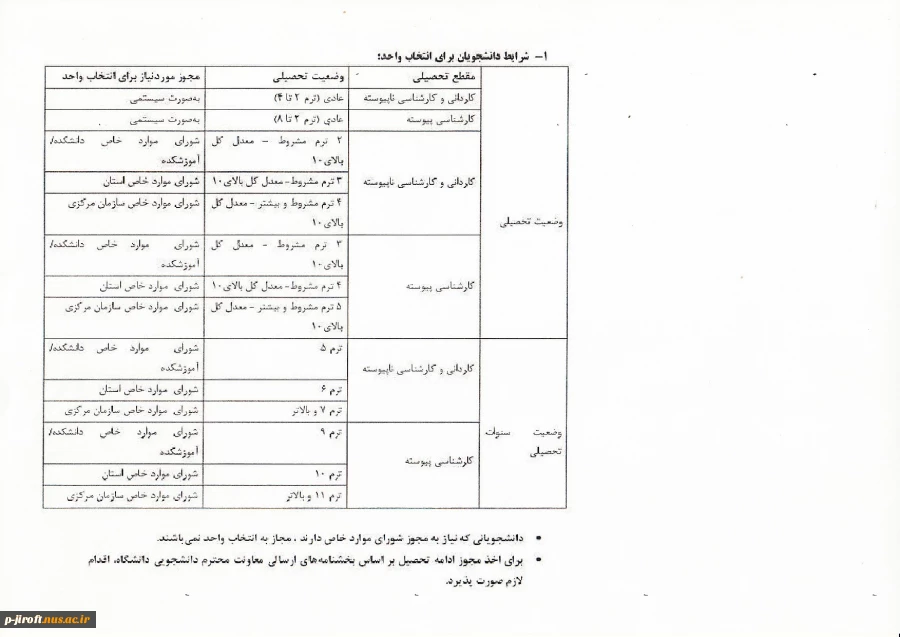 ۱- شرایط دانشجویان برای انتخاب واحد:
مقطع تحصیلی وضعیت تحصیلی مجوز موردنیاز برای انتخاب واحد
وضعیت تحصیلی
کاردانی و کارشناسی ناپیوسته عادی (ترم ۲ تا ۴) به‌صورت سیستمی
کارشناسی پیوسته عادی (ترم ۲ تا ۸) به‌صورت سیستمی
کاردانی و کارشناسی ناپیوسته
۲ ترم مشروط - معدل کل
بالای ۱۰
شورای موارد خاص دانشکده/
آموزشکده
۳ ترم مشروط- معدل کل بالای ۱۰ شورای موارد خاص استان
۴ ترم مشروط و بیشتر - معدل کل
بالای ۱۰
شورای موارد خاص سازمان مرکزی
کارشناسی پیوسته
۳ ترم مشروط - معدل کل
بالای ۱۰
شورای موارد خاص دانشکده/
آموزشکده
۴ ترم مشروط- معدل کل بالای ۱۰ شورای موارد خاص استان
۵ ترم مشروط و بیشتر - معدل کل
بالای ۱۰
شورای موارد خاص سازمان مرکزی
وضعیت سنوات
تحصیلی
کاردانی و کارشناسی ناپیوسته
ترم ۵
شورای موارد خاص دانشکده/
آموزشکده
ترم ۶ شورای موارد خاص استان
ترم ۷ و بالاتر شورای موارد خاص سازمان مرکزی
کارشناسی پیوسته
ترم ۹
شورای موارد خاص دانشکده/
آموزشکده
ترم ۱۰ شورای موارد خاص استان
ترم ۱۱ و بالاتر شورای موارد خاص سازمان مرکزی
• دانشجویانی که نیاز به مجوز شورای موارد خاص دارند ، مجاز به انتخاب واحد نمی‌باشند.
• برای اخذ مجوز ادامه تحصیل بر اساس بخشنامه‌های ارسالی معاونت محترم دانشجویی دانشگاه، اقدام
لازم صورت پذیرد.
p-jiroft.nus.ac.ir